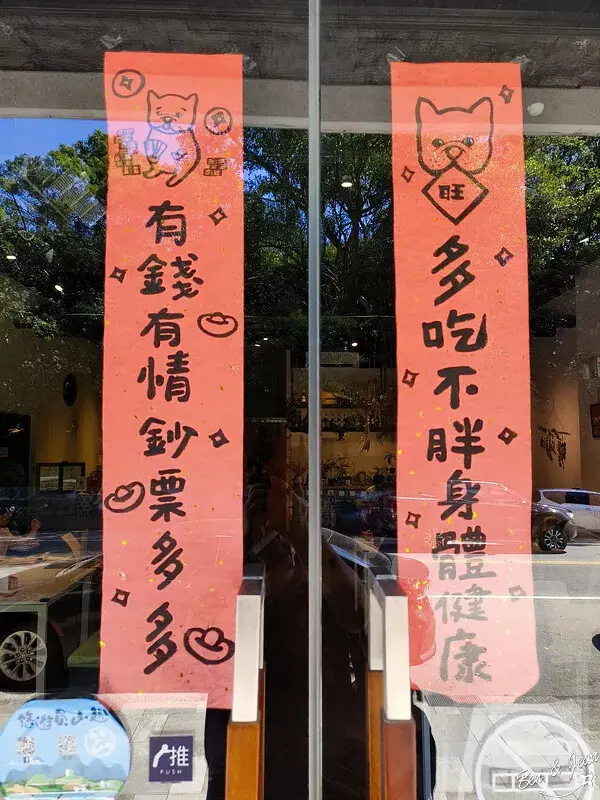 旺
多吃不胖身體健康
有錢有情鈔票多多
推
PUSH
Ben & Jean